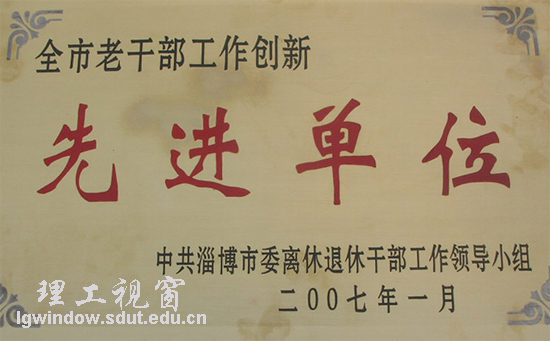 全市老干部工作创新
先进单位
中共淄博市委离休退休干部工作领导小组
二00七年一月
理工视窗
lgwindow.sdut.edu.cn